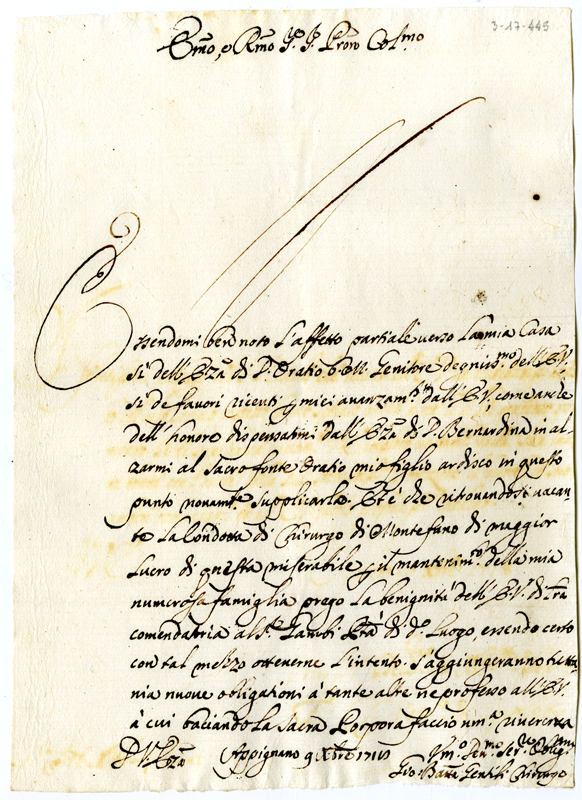 3-17-445
Em̃o, e Rm̃o Pr̃one Col.mo
Essendomi ben noto l'affetto partiale verso la mia Casa
si dell' Ecc.za di D. Oratio b. M. Genitore degniss.mo dell' E.V.,
si de favori vicenti p miei avanzam.ti dall' E.V., come anche
dell' honore dispensatmi dall' Ecc.za di D. Bernardina in al
zarmi al sacro fonte Oratio mio figlio ardisco in questo
punto novam.te supplicarla. Et è che ritrovandosi vacan
te la Condotta di Chirurgo di Montefano di maggior
lucro di questa miserabile p il mantenim.to della mia
numerosa famiglia prego la benignità dell' E.V. di
comendatria al S.r di d.o Luogo, essendo certo
con tal mezzo ottenerne l'intento. S'aggiungeranno
nia nuove obligationi à tante altre ne professo all' E.V.
à cui baciando la Sacra Porpora faccio um.a riverenza
D V. Ecc.za Appignano 9 Xbre 1715 Um.o Dev.mo Ser.re Oblig.mo
Gio Batta Gentili Chirurgo